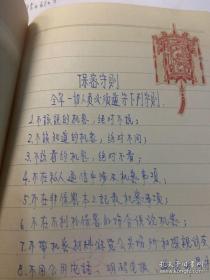 保密守则
全军一切人员必须遵守下列守则
1.不该说的机密，绝对不说；
2.不该知道的机密，绝对不问；
3.不该看的机密，绝对不看；
4.不在私人通信中涉及机密事项；
5.不在非保密本上记载机密事项；
6.不在不利于保密的场合谈论机密；
7.不带机密材料游览公共场所和探亲访友
8.不用公用电话、明码电报